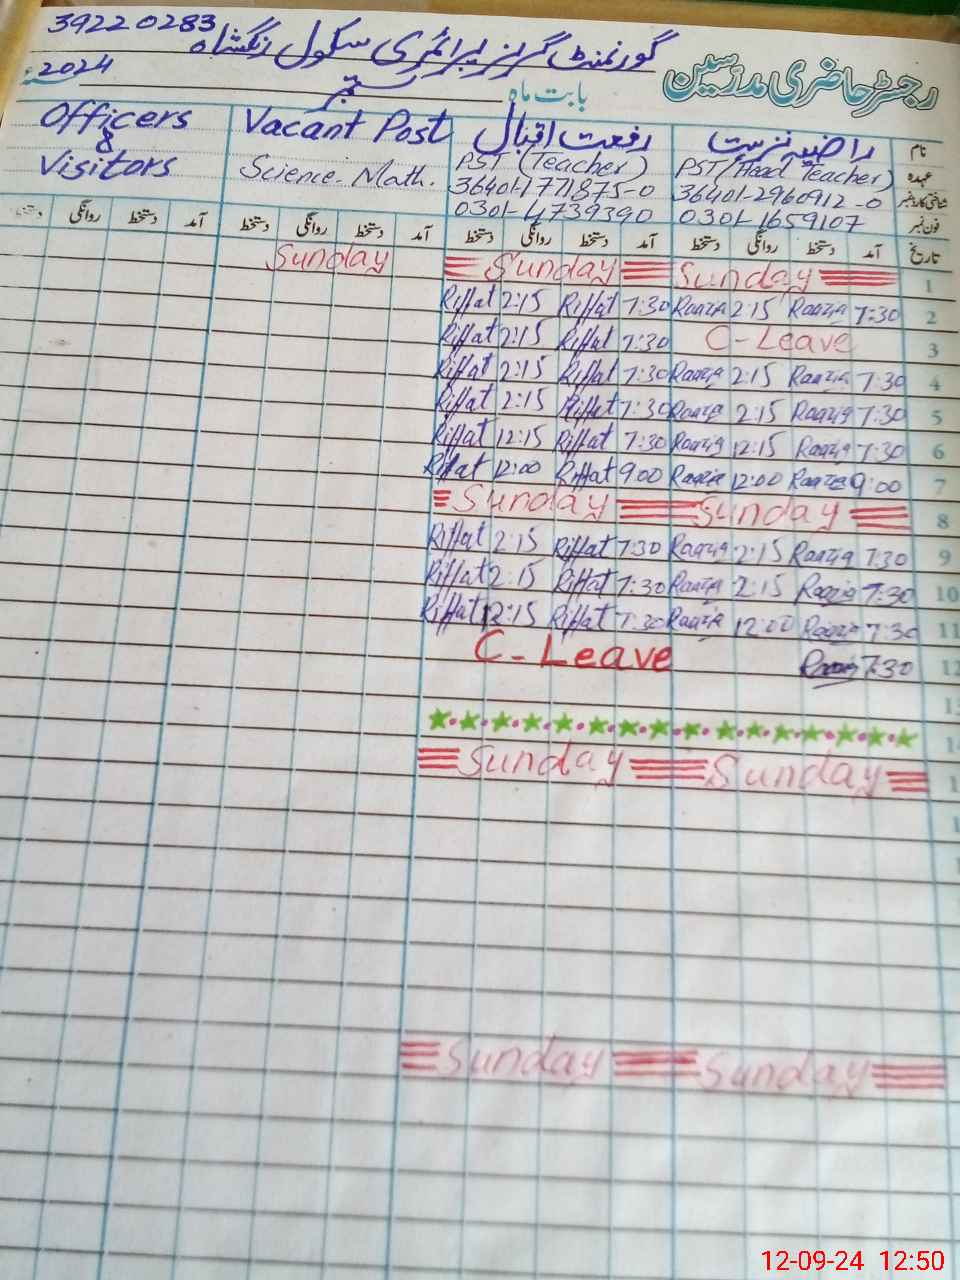 39220283 گورنمنٹ گرلز پرائمری سکول رنگشاہ
رجسٹر حاضری مدرسین
2024ء ستمبر بابت ماہ
Officers & Visitors
Vacant Post
Science-Math.
نام راضیہ نزہت رفعت اقبال
عہدہ PST/Head Teacher) PST (Teacher)
شناختی کارڈ نمبر 36401-2960912-0 36401-1771875-0
فون نمبر 0301-1659107 0301-4739390
تاریخ آمد دستخط روانگی دستخط آمد دستخط روانگی دستخط آمد دستخط روانگی دستخط آمد دستخط روانگی
Sunday Sunday Sunday 1
Riffat 2:15 Riffat 7:30 Raazia 2:15 Raazia 7:30 2
Riffat 2:15 Riffat 7:30 C-Leave 3
Riffat 2:15 Riffat 7:30 Raazia 2:15 Raazia 7:30 4
Riffat 2:15 Riffat 7:30 Raazia 2:15 Raazia 7:30 5
Riffat 12:15 Riffat 7:30 Raazia 12:15 Raazia 7:30 6
Riffat 12:00 Riffat 9:00 Raazia 12:00 Raazia 9:00 7
Sunday Sunday 8
Riffat 2:15 Riffat 7:30 Raazia 2:15 Raazia 7:30 9
Riffat 2:15 Riffat 7:30 Raazia 2:15 Raazia 7:30 10
Riffat 12:15 Riffat 7:30 Raazia 12:00 Raazia 7:30 11
C-Leave Raazia 7:30 12
Sunday Sunday
Sunday Sunday
12-09-24 12:50